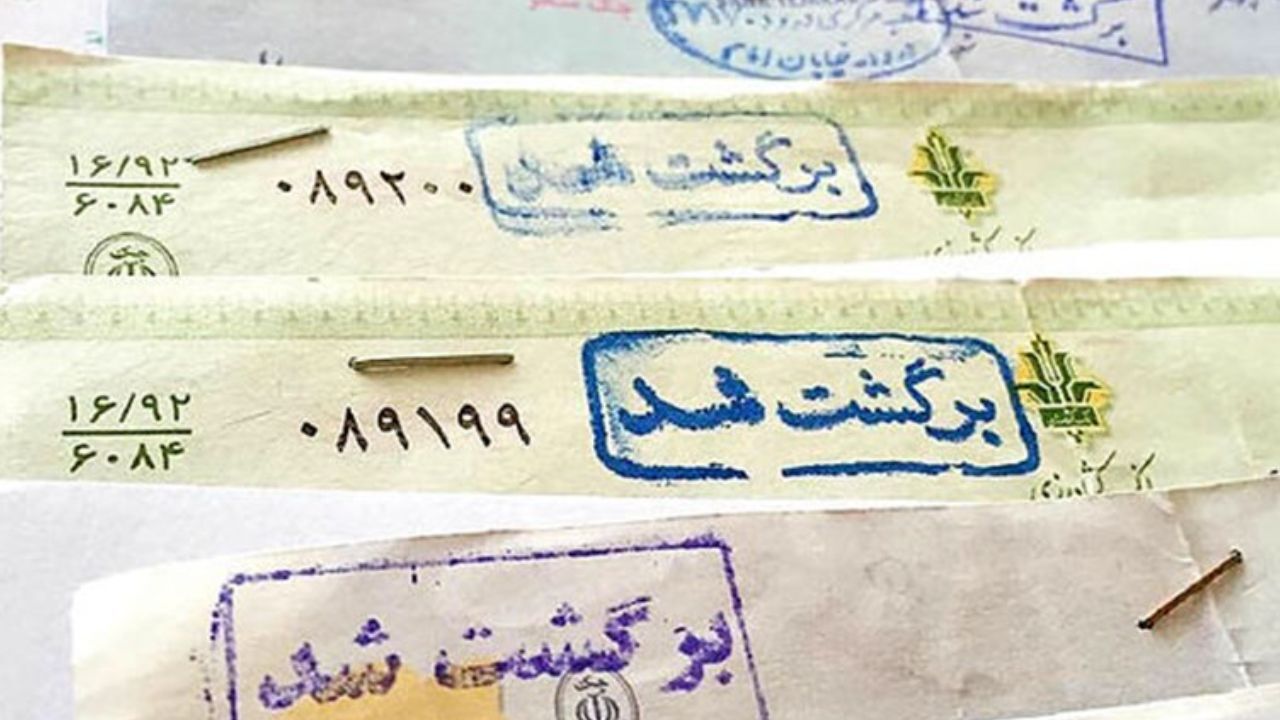 برگشت
خیابان
۱۶/۹۲
۶۰۸۴
۰۸۹۲۰۰
برگشت شد
چک
۱۶/۹۲
۶۰۸۴
۰۸۹۱۹۹
برگشت شد
کشاورزی
برگشت شد
چک